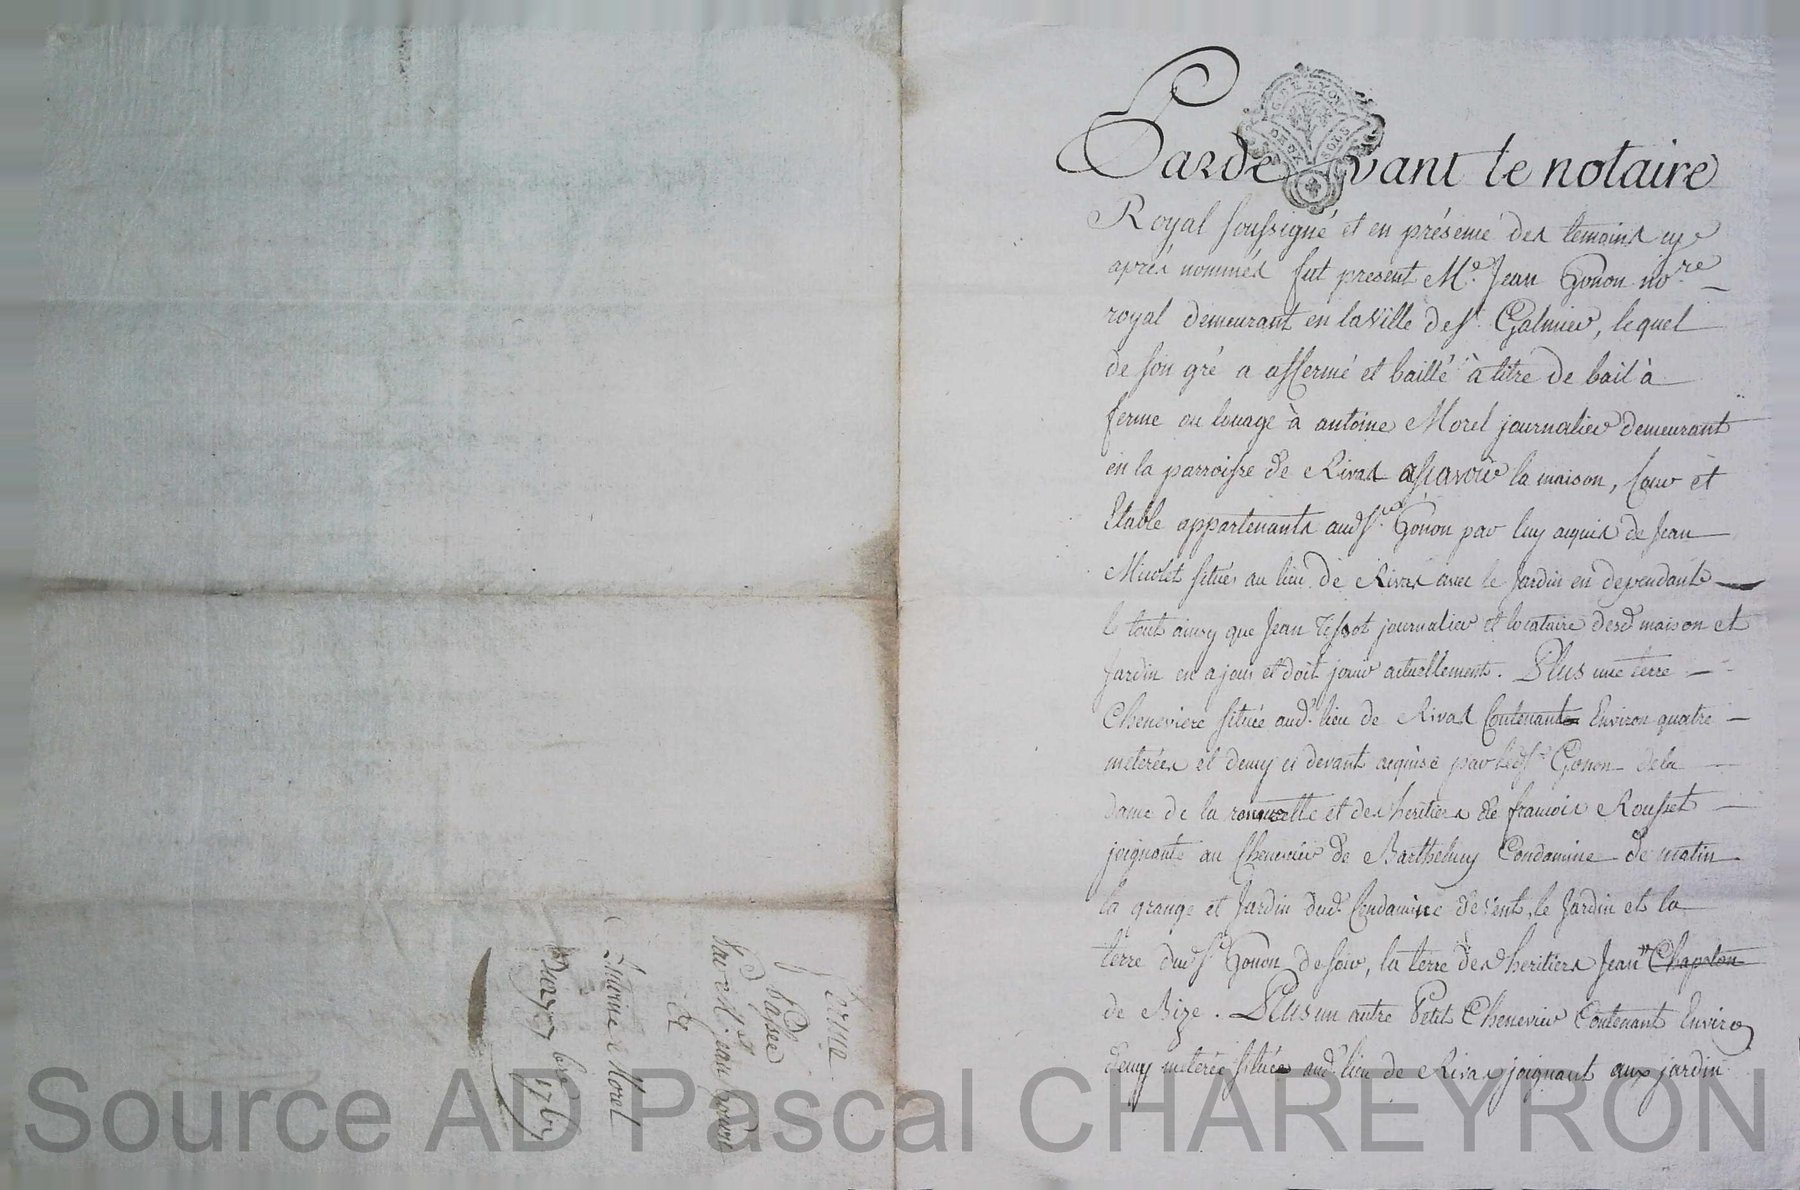 Pardevant le notaire
Royal soussigné et en présence des temoins cy
après nommés fut present Me. Jean Gonon no.re
royal demeurant en la ville de St. Galmier, lequel
de son gré a affermé et baillé à titre de bail à
ferme ou louage à antoine Morel journalier demeurant
en la parroisse de Rivas assavoir la maison, Cour et
Etable appartenants aud. Sr. Gonon par luy acquis de Jean
situés au lieu de Rivas avec le Jardin en dependants
le tout ainsy que Jean Tissot journalier et locataire desd. maison et
Jardin en a joui et doit jouir actuellement. Plus une terre
Cheneviere située aud. lieu de Rivas Contenante Environ quatre
meterées et demy ci devant acquise par led. Sr. Gonon de la
dame de la et des heritiers de francois Rousset
joignante au Chenevier de Barthelemy Condamine de matin
la grange et Jardin dud. Condamine de vent, le Jardin et la
terre dud. Sr. Gonon de soir, la terre des heritiers Jean Chapelon
de Bize. Plus un autre Petit Chenevier Contenant Environ
demy meterée située aud. lieu de Rivas joignant aux jardin
Ferme
passée
Par Me. jean Gonon
A
Antoine Morel
Du 27 bre 176
Source AD Pascal CHAREYRON